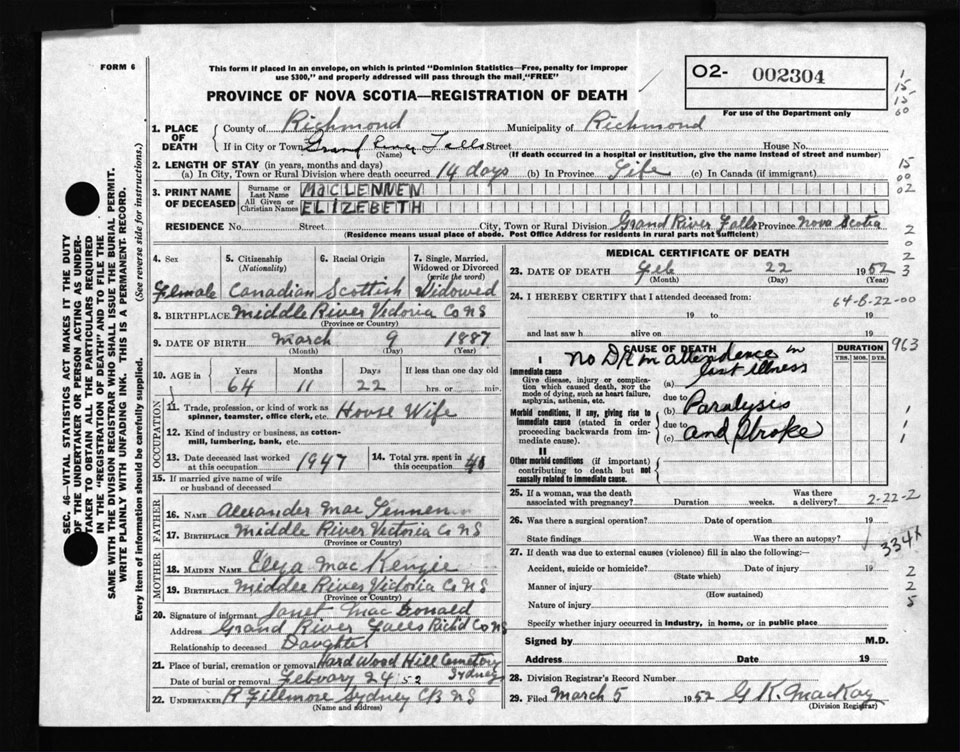 FORM 6
This form if placed in an envelope, on which is printed "Dominion Statistics—Free, penalty for improper
use $300," and properly addressed will pass through the mail "FREE"
PROVINCE OF NOVA SCOTIA—REGISTRATION OF DEATH
O2- 002304
For use of the Department only
1. PLACE OF DEATH
County of Richmond Municipality of Richmond
If in City or Town Grand River Falls Street House No.
(Name) (If death occurred in a hospital or institution, give the name instead of street and number)
2. LENGTH OF STAY (in years, months and days)
(a) In City, Town or Rural Division where death occurred 14 days (b) In Province Life (c) In Canada (if immigrant)
3. PRINT NAME OF DECEASED
Surname or Last Name MACLENNEN
All Given or Christian Names ELIZEBETH
RESIDENCE No. Street City, Town or Rural Division Grand River Falls Province Nova Scotia
(Residence means usual place of abode. Post Office Address for residents in rural parts not sufficient)
4. Sex Female
5. Citizenship (Nationality) Canadian
6. Racial Origin Scottish
7. Single, Married, Widowed or Divorced (write the word) Widowed
8. BIRTHPLACE Middle River Victoria Co NS
(Province or Country)
9. DATE OF BIRTH March 9 1887
(Month) (Day) (Year)
10. AGE in Years 64 Months 11 Days 22 If less than one day old hrs. or min.
OCCUPATION
11. Trade, profession, or kind of work as spinner, teamster, office clerk, etc. House Wife
12. Kind of industry or business, as cotton-mill, lumbering, bank, etc.
13. Date deceased last worked at this occupation 1947
14. Total yrs. spent in this occupation
15. If married give name of wife or husband of deceased
FATHER
16. NAME Alexander Mac Lennen
17. BIRTHPLACE Middle River Victoria Co NS
(Province or Country)
MOTHER
18. MAIDEN NAME Eliza Mac Kenzie
19. BIRTHPLACE Middle River Victoria Co NS
(Province or Country)
20. Signature of informant Janet Mac Donald
Address Grand River Falls Rich'd Co NS
Relationship to deceased Daughter
21. Place of burial, cremation or removal Hard Wood Hill Cemetery Sydney
Date of burial or removal Febuary 24 52
22. UNDERTAKER R Fillmore Sydney CB NS
(Name and address)
MEDICAL CERTIFICATE OF DEATH
23. DATE OF DEATH Feb 22 1952
(Month) (Day) (Year)
24. I HEREBY CERTIFY that I attended deceased from:
19 to 19
and last saw h alive on 19
CAUSE OF DEATH
DURATION
YRS. MOS. DYS.
I
Immediate cause
Give disease, injury or complication which caused death, NOT the mode of dying, such as heart failure, asphyxia, asthenia, etc.
No DR in attendence in
(a) last illness
due to
Morbid conditions, if any, giving rise to immediate cause (stated in order proceeding backwards from immediate cause).
(b) Paralysis
due to
(c) and Stroke
II
Other morbid conditions (if important) contributing to death but not causally related to immediate cause.
25. If a woman, was the death associated with pregnancy? Duration weeks. Was there a delivery?
26. Was there a surgical operation? Date of operation 19
State findings Was there an autopsy?
27. If death was due to external causes (violence) fill in also the following:—
Accident, suicide or homicide? Date of injury 19
(State which)
Manner of injury
(How sustained)
Nature of injury
Specify whether injury occurred in industry, in home, or in public place
Signed by M.D.
Address Date 19
28. Division Registrar's Record Number
29. Filed March 5 1952 G K. MacKay
(Division Registrar)
64-B-22-00
963
2-22-2
334X
SEC. 46—VITAL STATISTICS ACT MAKES IT THE DUTY
OF THE UNDERTAKER OR PERSON ACTING AS UNDER-
TAKER TO OBTAIN ALL THE PARTICULARS REQUIRED
IN THE "REGISTRATION OF DEATH" AND TO FILE THE
SAME WITH THE DIVISION REGISTRAR WHO SHALL ISSUE THE BURIAL PERMIT.
WRITE PLAINLY WITH UNFADING INK. THIS IS A PERMANENT RECORD.
Every item of information should be carefully supplied. (See reverse side for instructions.)